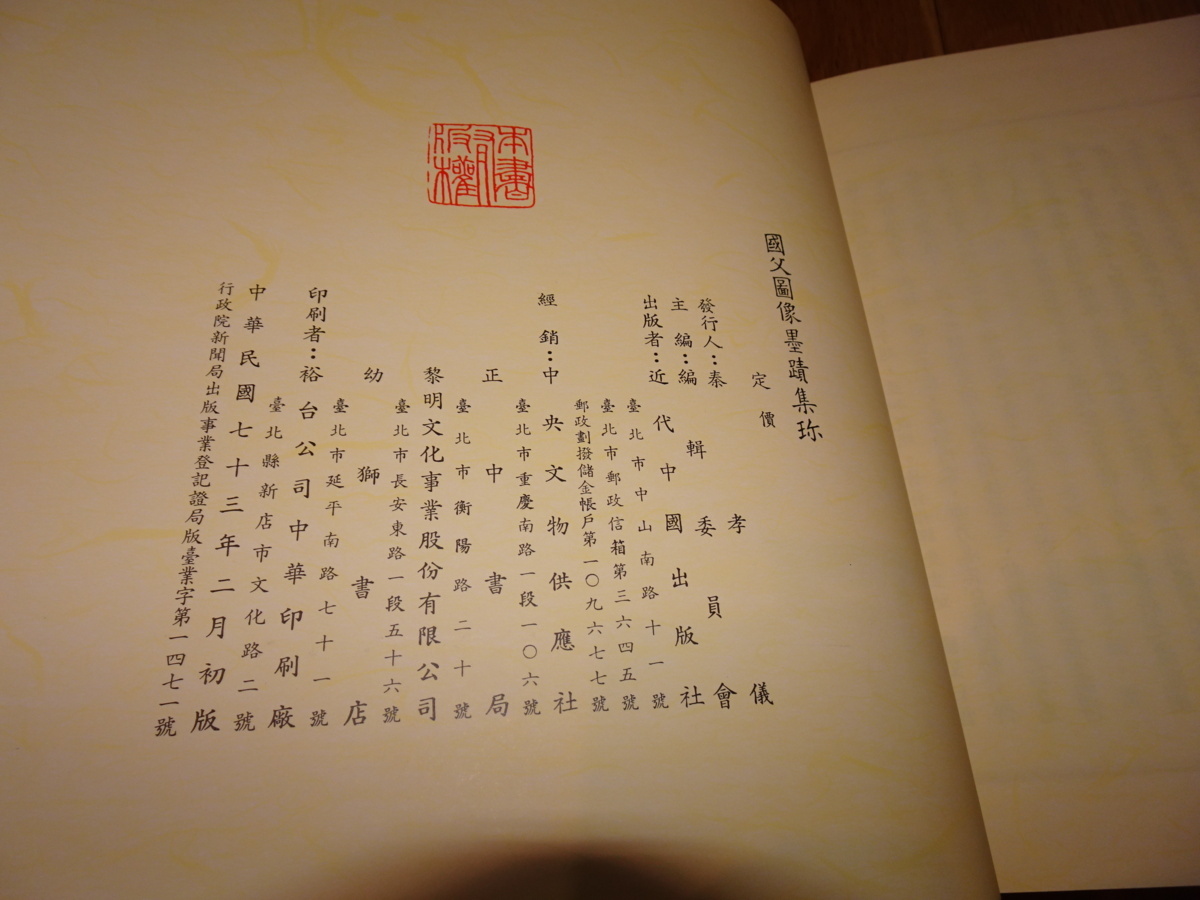 本書
有
版權
國父圖像墨蹟集珍
定價
發行人：秦孝儀
主編：編輯委員會
出版者：近代中國出版社
臺北市中山南路十一號
臺北市郵政信箱第三六四五號
郵政劃撥儲金帳戶第一〇九六七七號
經銷：中央文物供應社
臺北市重慶南路一段一〇六號
正中書局
臺北市衡陽路二十號
黎明文化事業股份有限公司
臺北市長安東路一段五十六號
幼獅書店
臺北市延平南路七十一號
印刷者：裕台公司中華印刷廠
臺北縣新店市文化路二號
中華民國七十三年二月初版
行政院新聞局出版事業登記證局版臺業字第一四七一號